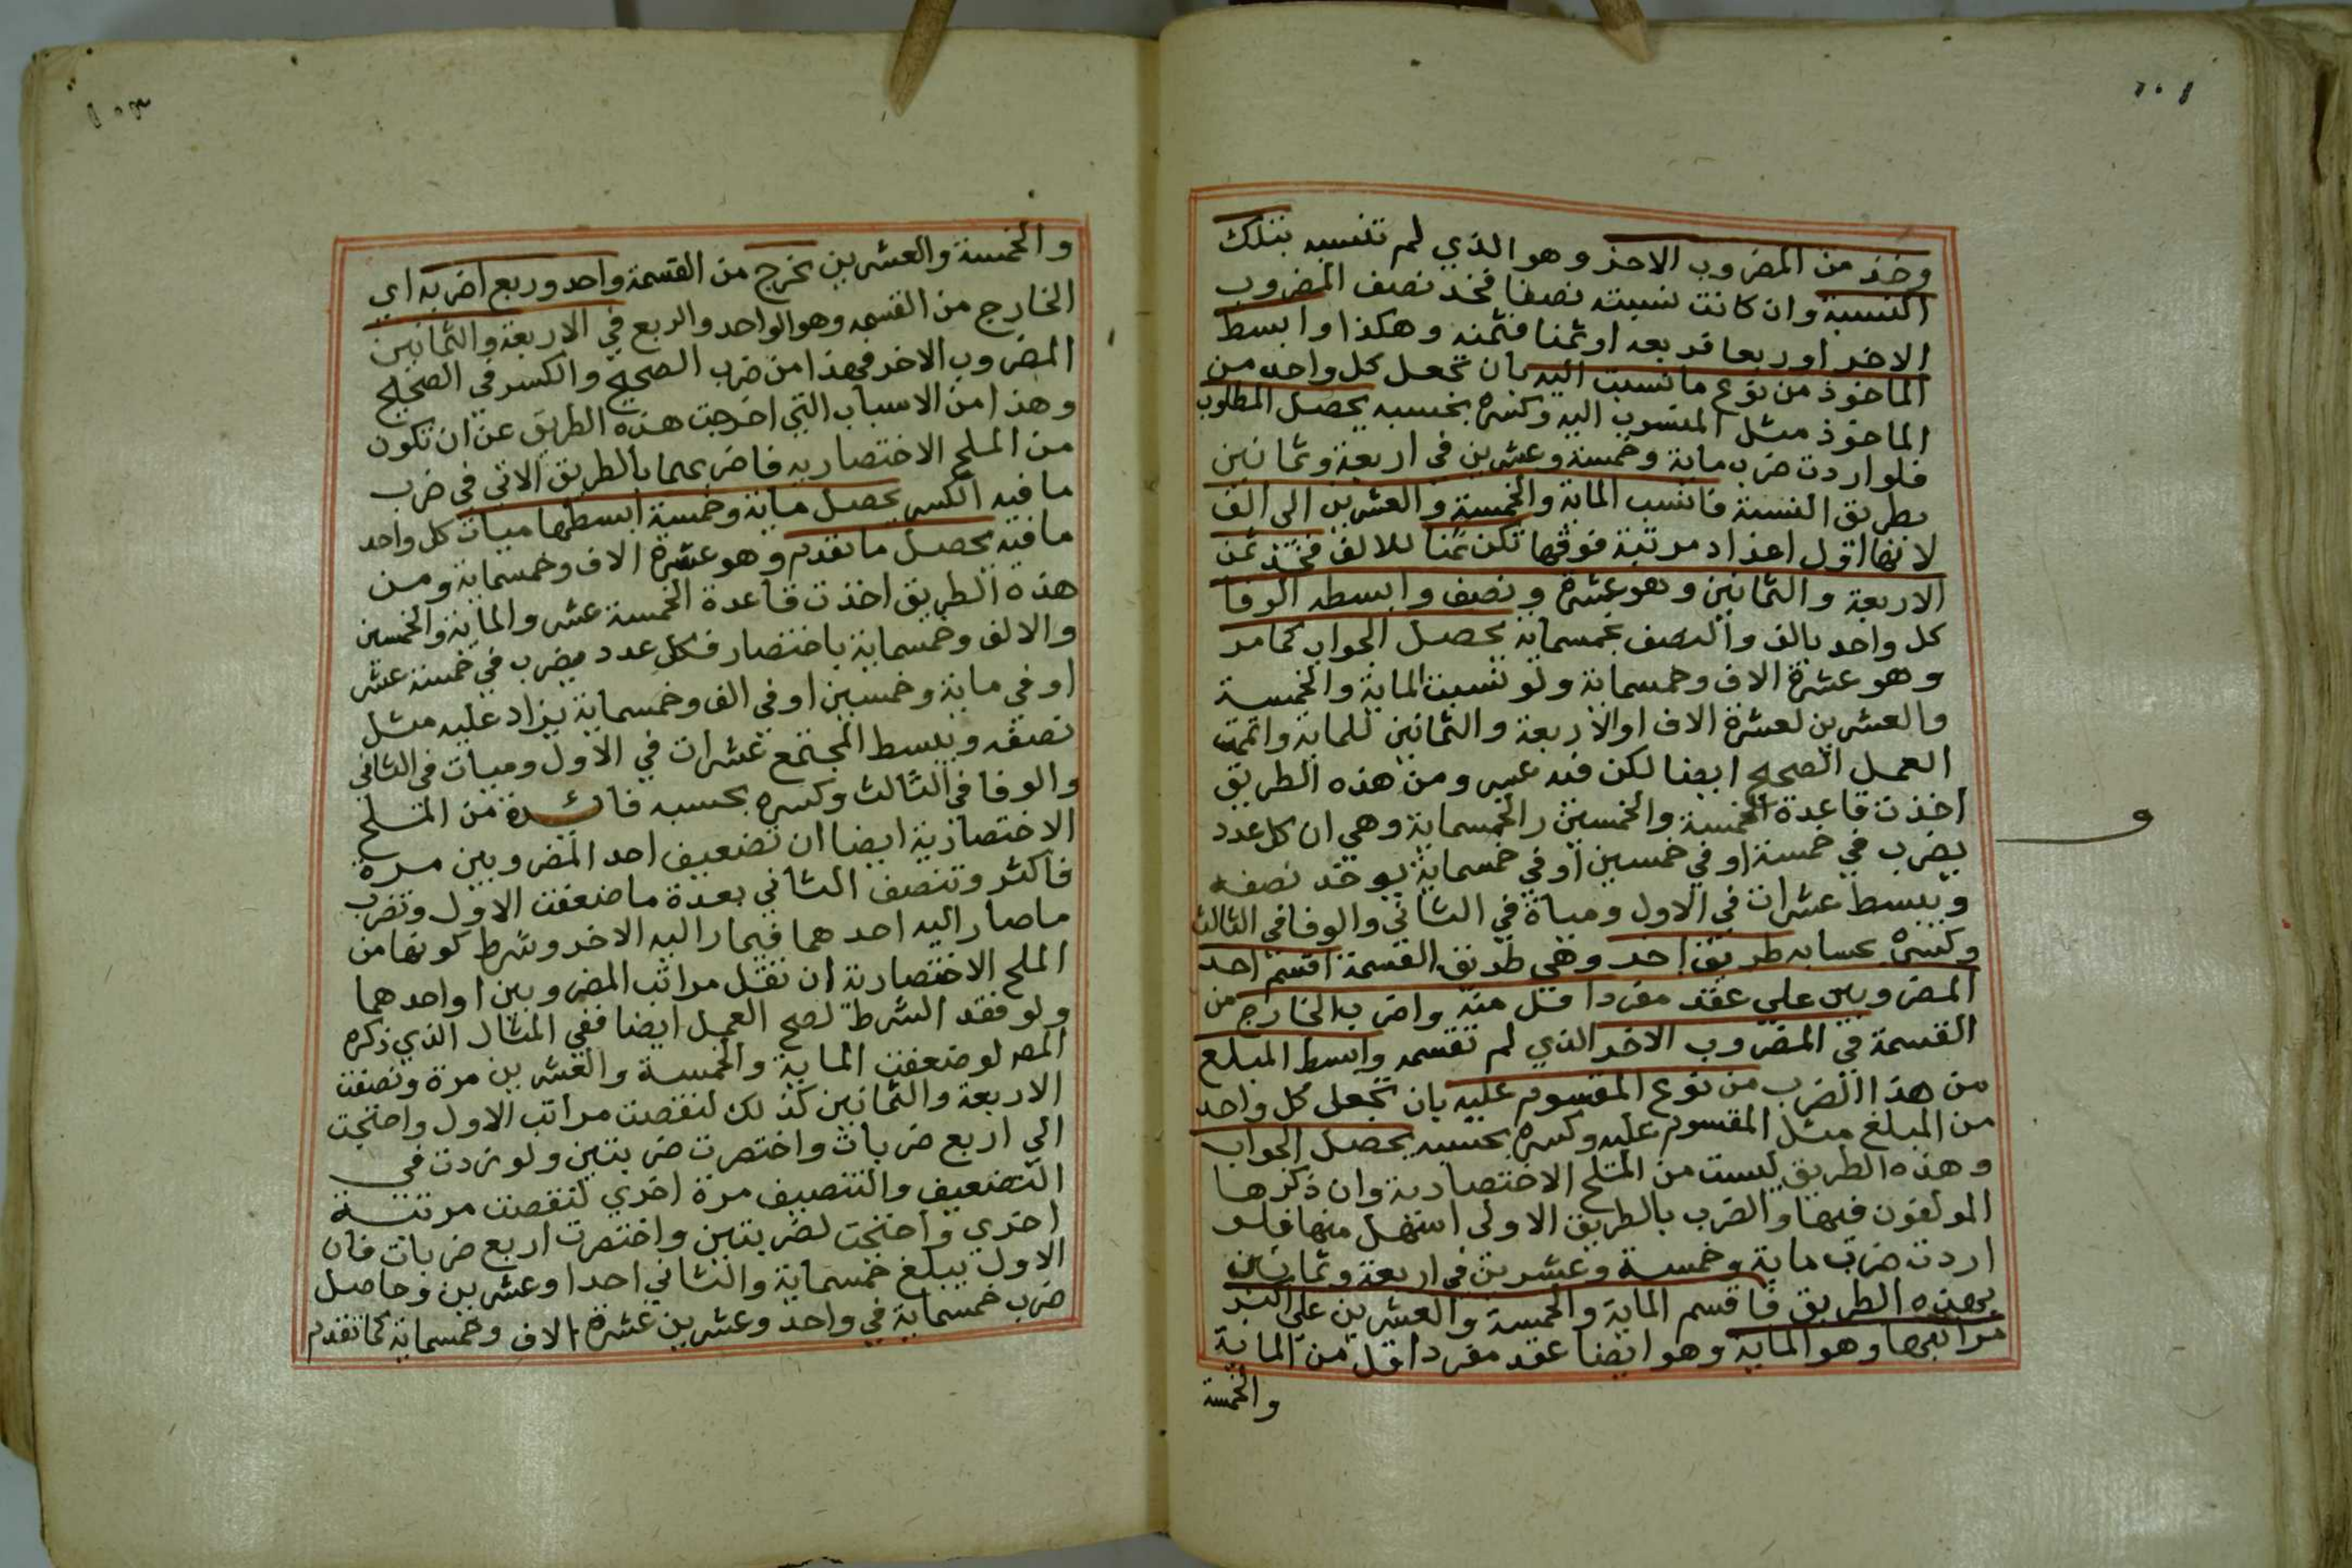 ١٠٢
وخذ من المضروب الاخر وهو الذي لم تنسبه بتلك
النسبة وان كانت نسبته نصفا فخذ نصف المضروب
الاخر او ربعا فربعه او ثمنا فثمنه وهكذا وابسط
الماخوذ من نوع ما نسبت اليه بان تجعل كل واحد من
الماخوذ مثل المنسوب اليه وكسره بحسبه يحصل المطلوب
فلو اردت ضرب ماية وخمسة وعشرين في اربعة وثمانين
بطريق النسبة فانسب الماية والخمسة والعشرين الى الف
لانها اول اعداد مرتبة فوقها تكن ثمنا للالف فخذ ثمن
الاربعة والثمانين وهو عشرة ونصف وابسطه الوفا
كل واحد بالف والنصف بخمسماية يحصل الجواب كما مر
وهو عشرة الاف وخمسماية ولو نسبت الماية والخمسة
والعشرين لعشرة الاف او الاربعة والثمانين للماية واتممت
العمل الصحيح ايضا لكن فيه عسر ومن هذه الطريق
اخذت قاعدة الخمسة والخمسين والخمسماية وهي ان كل عدد
يضرب في خمسة او في خمسين او في خمسماية يوخذ نصفه
ويبسط عشرات في الاول ومياة في الثاني والوفا في الثالث
وكسره بحسابه طريق اخر وهي طريق القسمة اقسم احد
المضروبين على عقد مفرد اقل منه واضرب الخارج من
القسمة في المضروب الاخر الذي لم تقسمه وابسط المبلغ
من هذا الضرب من نوع المقسوم عليه بان تجعل كل واحد
من المبلغ مثل المقسوم عليه وكسره بحسبه يحصل الجواب
وهذه الطريق ليست من الملح الاختصارية وان ذكرها
المولفون فيها والضرب بالطريق الاولى اسهل منها فلو
اردت ضرب ماية وخمسة وعشرين في اربعة وثمانين
بهذه الطريق فاقسم الماية والخمسة والعشرين على اكبر
مراتبها وهو الماية وهو ايضا عقد مفرد اقل من الماية
والخمسة
و
١٠٣
والخمسة والعشرين يخرج من القسمة واحد وربع اضربه اي
الخارج من القسمه وهو الواحد والربع في الاربعة والثمانين
المضروب الاخر فهذا من ضرب الصحيح والكسر في الصحيح
وهذا من الاسباب التي اخرجت هذه الطريق عن ان تكون
من الملح الاختصاريه فاضربهما بالطريق الاتي في ضرب
ما فيه الكسر يحصل ماية وخمسة ابسطها ميات كل واحد
مافيه يحصل ما تقدم وهو عشرة الاف وخمسماية ومن
هذه الطريق اخذت قاعدة الخمسة عشر والماية والخمسين
والالف وخمسماية باختصار فكل عدد يضرب في خمسة عشر
او في ماية وخمسين او في الف وخمسماية يزاد عليه مثل
نصفه ويبسط المجتمع عشرات في الاول وميات في الثاني
والوفا في الثالث وكسره بحسبه فائدة من الملح
الاختصارية ايضا ان تضعيف احد المضروبين مرة
فاكثر وتنصف الثاني بعدة ما ضعفت الاول وتضرب
ما صار اليه احدهما فيما راليه الاخر وشرط كونها من
الملح الاختصارية ان تقل مراتب المضروبين او احدهما
ولو فقد الشرط لصح العمل ايضا ففي المثال الذي ذكره
المصـ لو ضعفت الماية والخمسة والعشرين مرة ونصفت
الاربعة والثمانين كذلك لنقصت مراتب الاول واحتجت
الي اربع ضربات واختصرت ضربتين ولو زدت في
التضعيف والتنصيف مرة اخري لنقصت مرتبة
اخري واحتجت لضربتين واختصرت اربع ضربات فان
الاول يبلغ خمسماية والثاني احدا وعشرين وحاصل
ضرب خمسماية في واحد وعشرين عشرة الاف وخمسماية كما تقدم